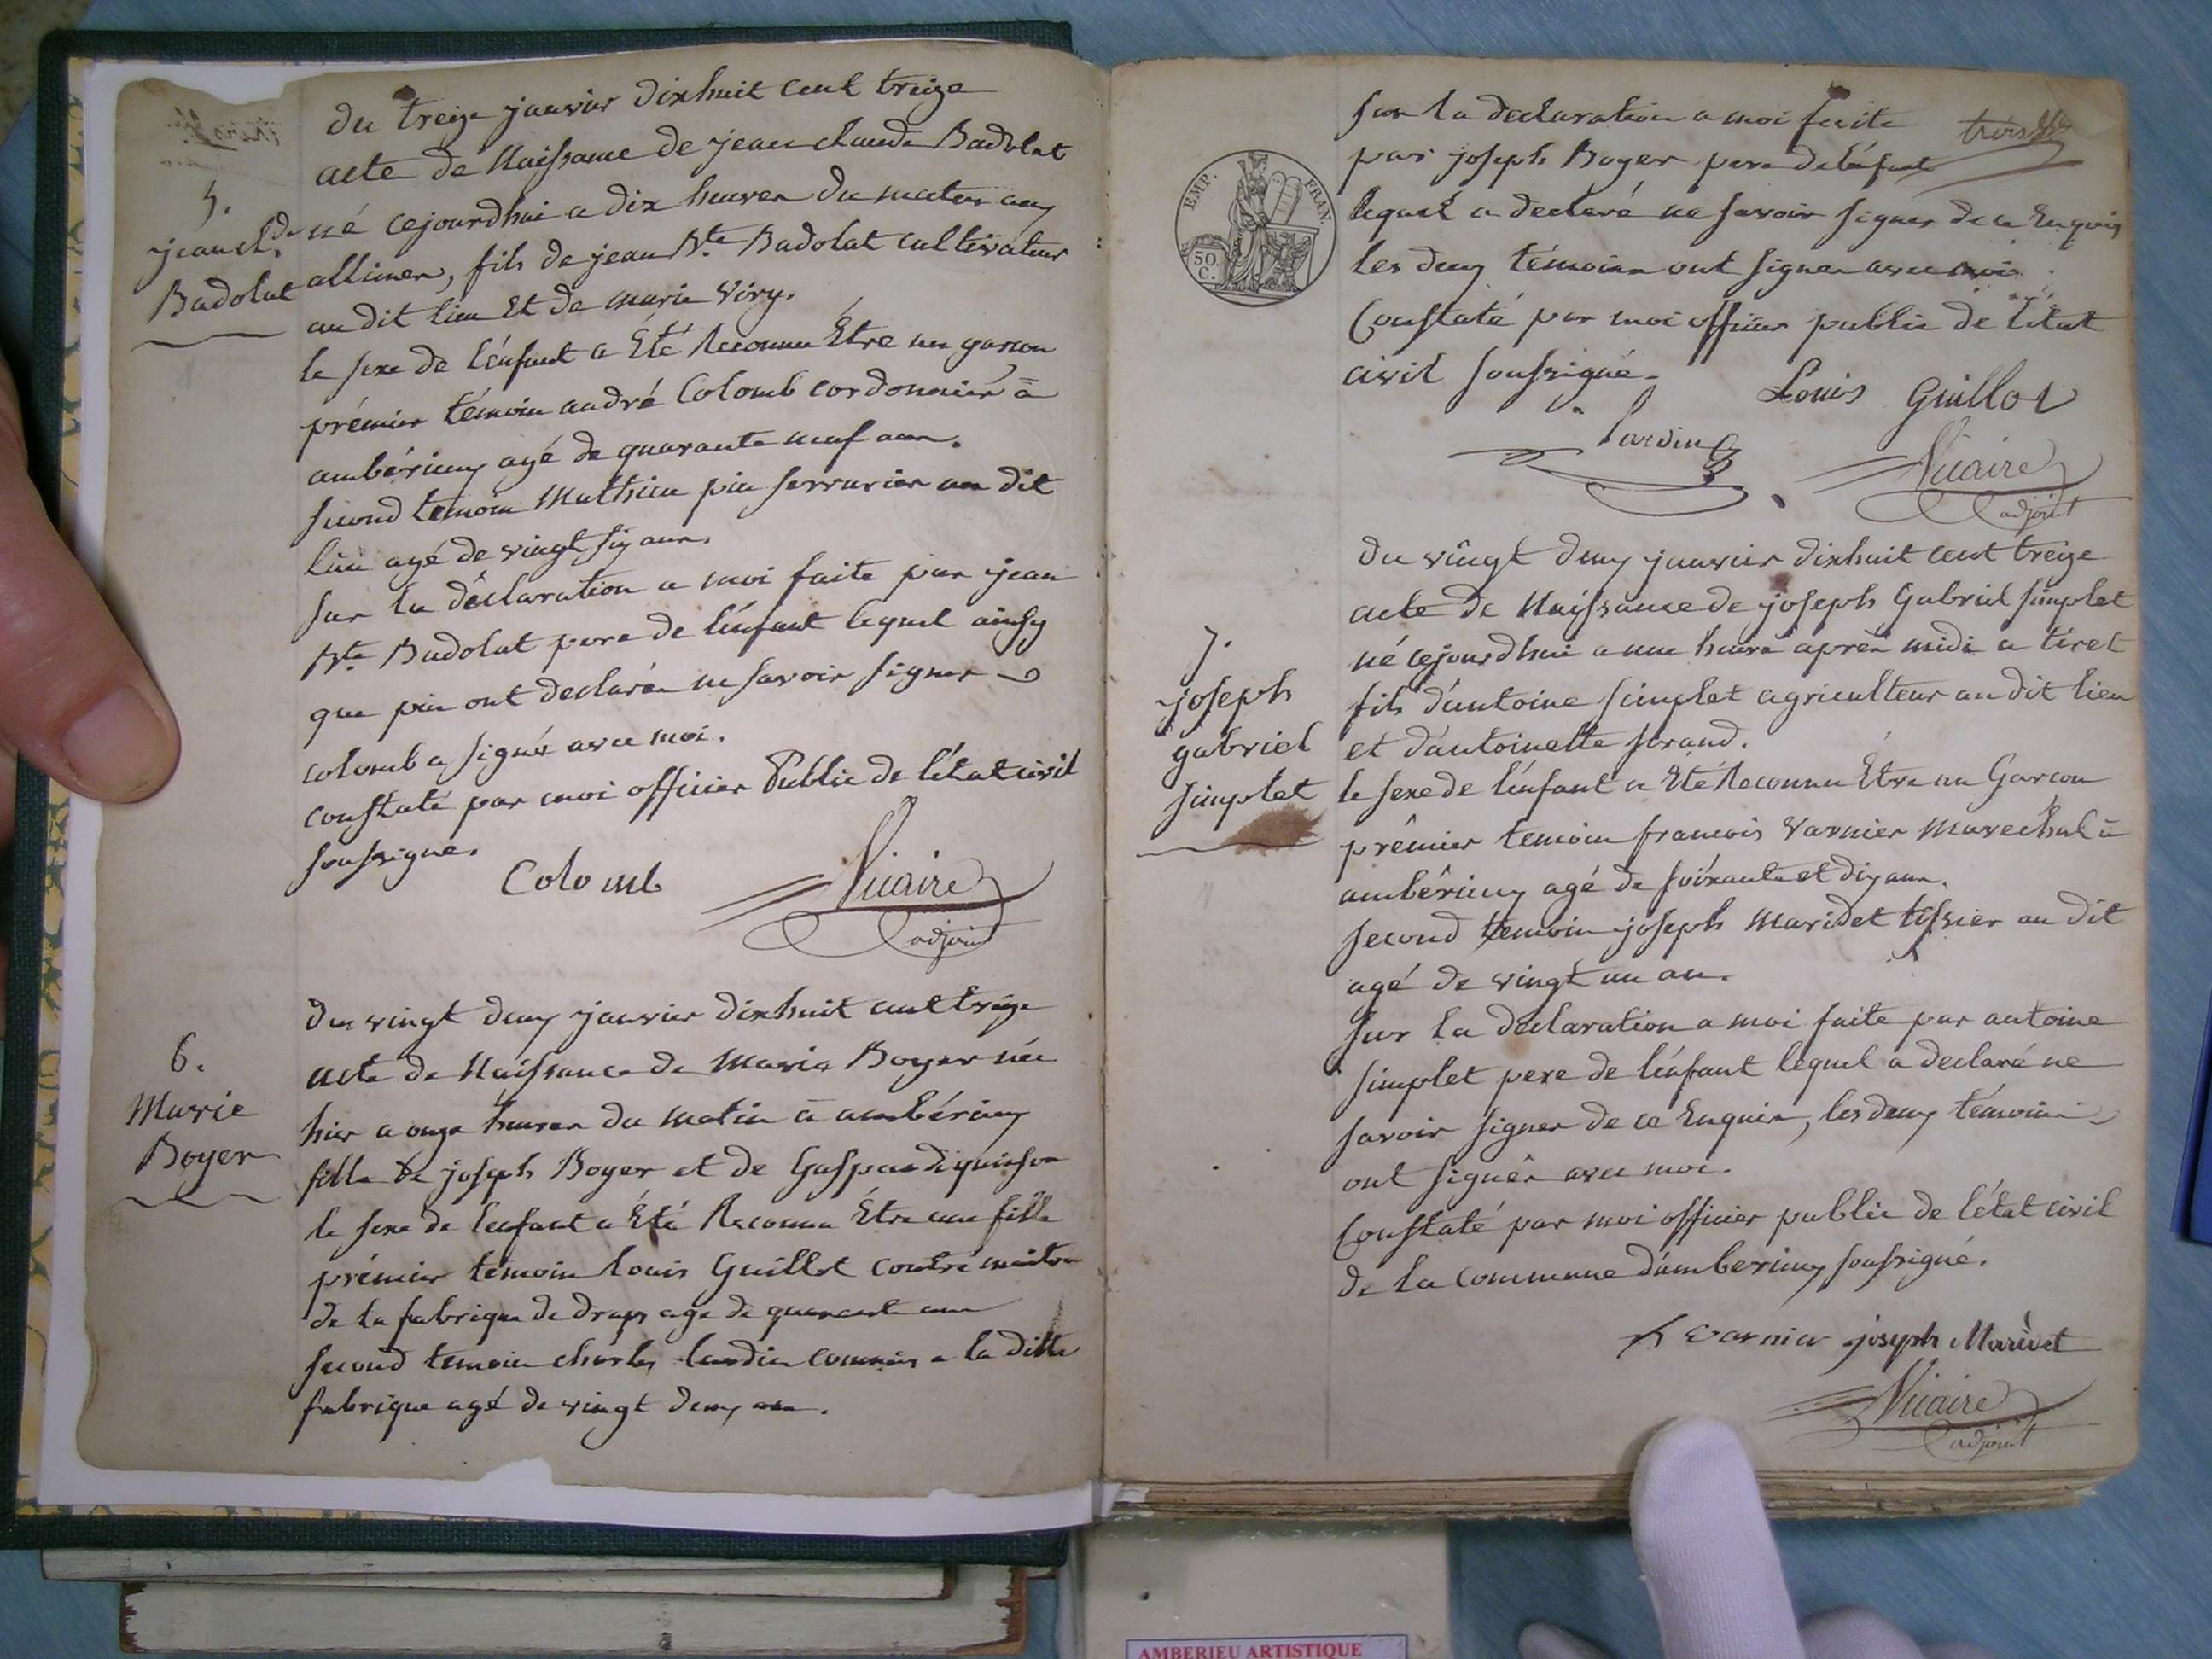 du treize janvier dixhuit cent treize
acte de Naissance de jean claude Badolat
5.
jean cl.de
Badolat
né cejourdhui a dix heures du matin aux
allimes, fils de jean Bte. Badolat cultivateur
au dit lieu Et de marie Viry.
le sexe de lénfant a Été Reconnu Être un garcon
prémier témoin andré Colomb cordonnier à
ambérieux agé de quarante neuf ans.
second temoin Mathieu pin serrurier au dit
lieu agé de vingt six ans.
sur la déclaration a moi faite par jean
Bte. Badolat pere de lénfant lequel ainsy
que pin ont declarés ne savoir signer
colomb a signé avec moi.
constaté par moi officier Public de létat civil
soussigné.
Colomb
Vicaire
adjoint
6.
Marie
Boyer
du vingt deux janvier dixhuit cent treize
acte de Naissance de Marie Boyer née
hier a onze heures du matin à ambérieux
fille de joseph Boyer et de
le sexe de lenfant a Été Reconnu Être une fille
prémier témoin louis Guillot contre
de la fabrique de draps age de quarante ans
second temoin charles commis a la ditte
fabrique agé de vingt deux ans.
trois
EMP. FRAN.
50
C.
sur la declaration a moi faite
par joseph Boyer pere de lénfant
lequel a declaré ne savoir signer de ce Enquis
les deux témoins ont signer avec moi
Constaté par moi officier public de létat
civil soussigné.
Louis Guillot
Vicaire
adjoint
7.
joseph
gabriel
simplet
du vingt deux janvier dixhuit cent treize
acte de Naissance de joseph Gabriel simplet
né cejourdhui a une heure après midi a tiret
fils d'antoine simplet agriculteur au dit lieu
et d'antoinette
le sexe de lénfant a Été Reconnu Être un Garcon
prémier temoin francois Varnier Marechal à
ambérieux agé de soixante et dix ans.
second temoin joseph Maridet tissier au dit
agé de vingt un an.
sur la déclaration a moi faite par antoine
simplet pere de lénfant lequel a declaré ne
savoir signer de ce Enquis, les deux témoins
ont signér avec moi.
Constaté par moi officier public de létat civil
de la commune d'amberieux soussigné.
varnier joseph Maridet
Vicaire
adjoint
AMBERIEU ARTISTIQUE